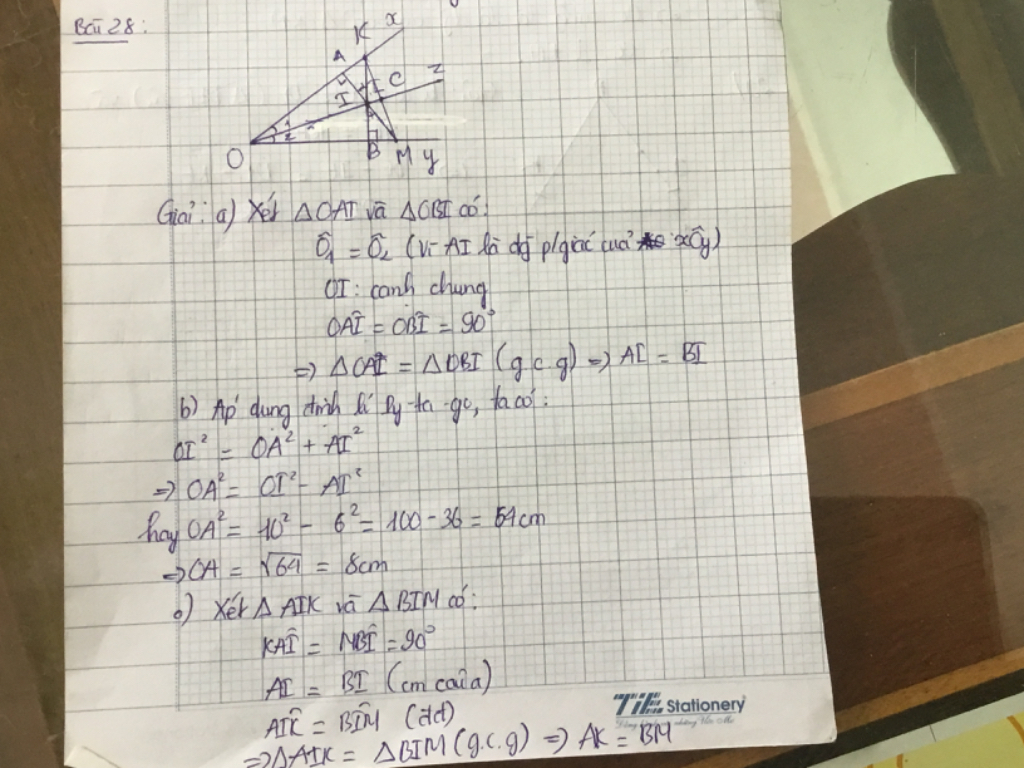 Bài 28:
K x
A
I I C z
1
2
O B M y
Giải: a) Xét ΔOAI và ΔOBI có:
Ô₁ = Ô₂ (Vì AI là đg p/giác của xÔy)
OI: cạnh chung
OÂI = OB̂I = 90°
=> ΔOAI = ΔOBI (g.c.g) => AI = BI
b) Áp dụng định lí Py-ta-go, ta có:
OI² = OA² + AI²
=> OA² = OI² - AI²
hay OA² = 10² - 6² = 100 - 36 = 64cm
=> OA = √64 = 8cm
c) Xét Δ AIK và Δ BIM có:
KAÎ = MBÎ = 90°
AI = BI (cm câu a)
AIK̂ = BIM̂ (đđ)
=> ΔAIK = ΔBIM (g.c.g) => AK = BM
TiE Stationery